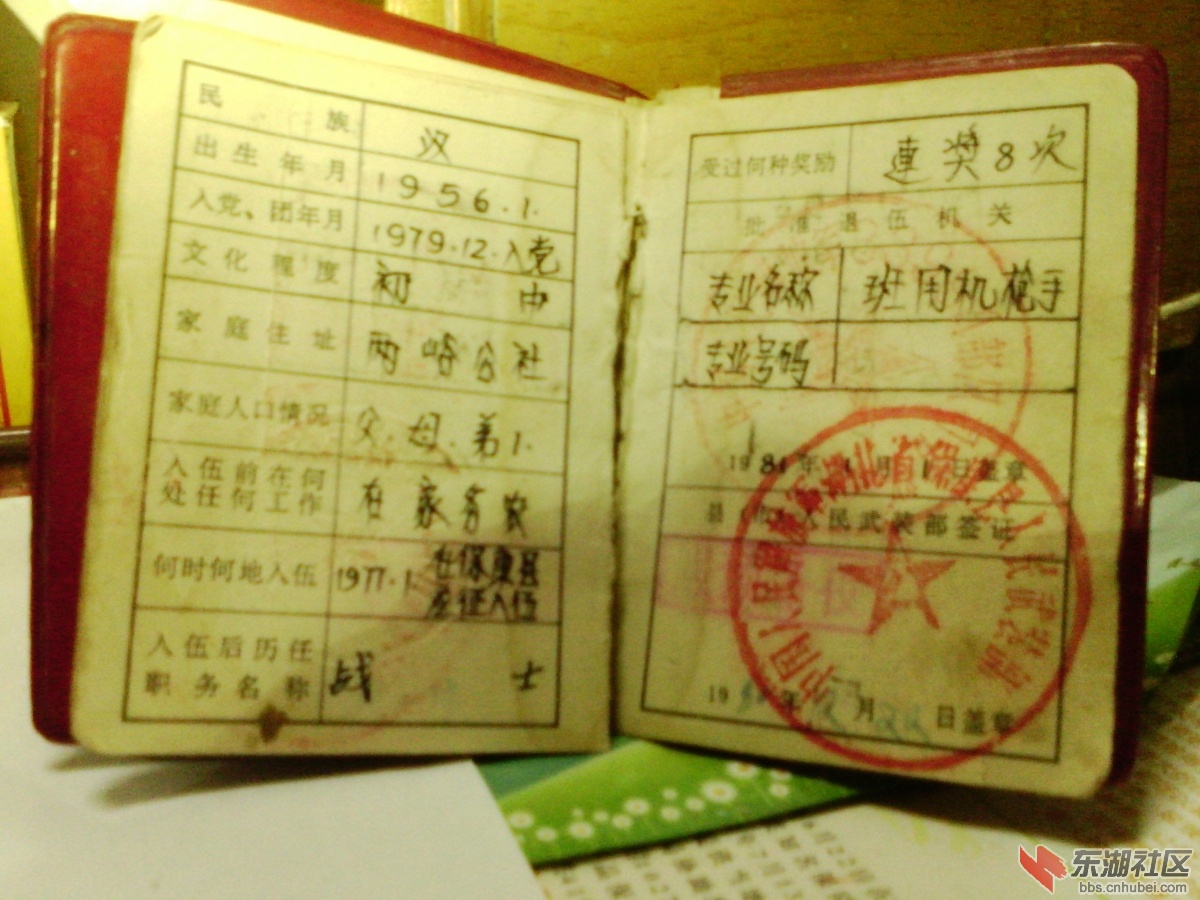 民族 汉
出生年月 1956.1.
入党、团年月 1979.12.入党
文化程度 初中
家庭住址 两峪公社
家庭人口情况 父.母.弟1.
入伍前在何
处任何工作 在家务农
何时何地入伍 1977.1. 在保康县
应征入伍
入伍后历任
职务名称 战士
受过何种奖励 連奖8次
批准退伍机关
专业名称 班用机枪手
专业号码
1981年1月1日盖章
县(市)人民武装部签证
中国人民解放军湖北省保康县人民武装部
19 年 月 日盖章
东湖社区
bbs.cnhubei.com